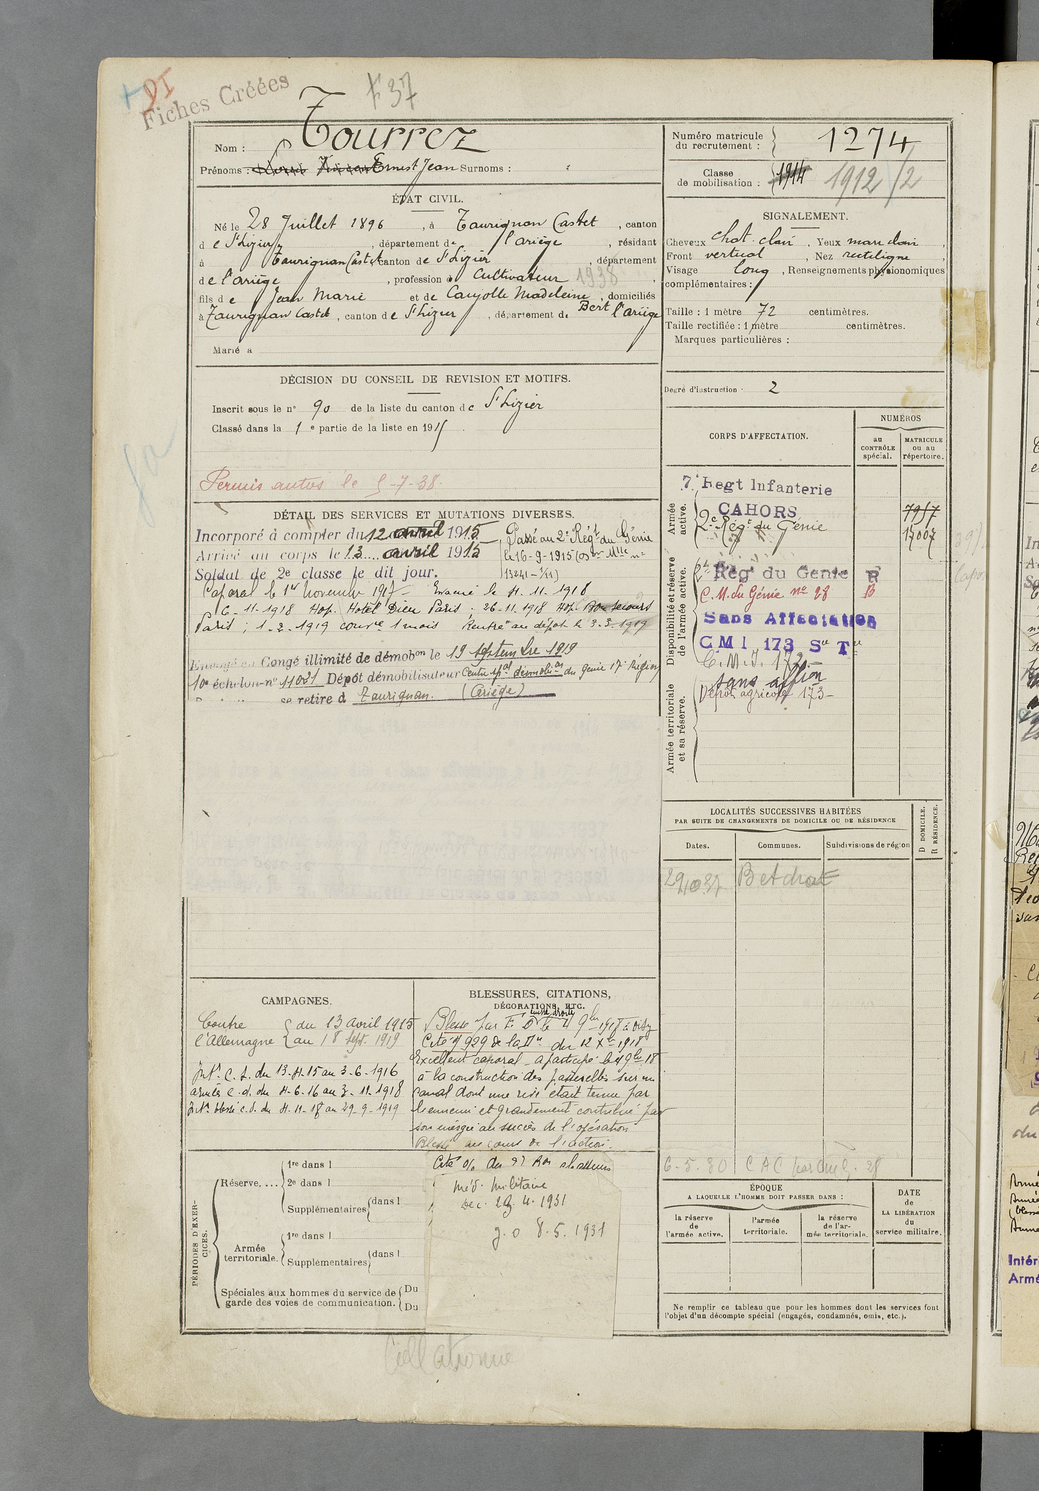 + DI
Fiches Créées
F 37
Nom : Tourrez
Prénoms : Ernest Jean Surnoms : :
Numéro matricule du recrutement : 1274
Classe de mobilisation : 1914 1912/2
ÉTAT CIVIL.
Né le 28 Juillet 1896, à Taurignan Castet, canton
de St Lizier, département de l'ariège, résidant
à Taurignan Castet canton de St Lizier, département
de l'ariège, profession de Cultivateur 1938
fils de Jean Marie et de Cayolle Madeleine, domiciliés
à Taurignan Castet, canton de St Lizier, département de l'ariège
Marié à
SIGNALEMENT.
Cheveux chat. clair, Yeux mar. clair,
Front vertical, Nez rectiligne,
Visage long, Renseignements physionomiques
complémentaires :
Taille : 1 mètre 72 centimètres.
Taille rectifiée : 1 mètre centimètres.
Marques particulières :
Degré d'instruction : 2
DÉCISION DU CONSEIL DE REVISION ET MOTIFS.
Inscrit sous le n° 90 de la liste du canton de St Lizier
Classé dans la 1e partie de la liste en 191
Permis autos le 5-7-38.
DÉTAIL DES SERVICES ET MUTATIONS DIVERSES.
Incorporé à compter du 12 avril 1915
Arrivé au corps le 13 avril 1915
Soldat de 2e classe le dit jour.
Passé au 2e Régt du Génie
le 16-9-1915
Caporal le 1er Novembre 1917 - Evacué le 4.11.1918
6-11-1918 Hop. Hotel Dieu Paris ; 26.11.1918 Hop. Bon Secours
Paris ; 1-2-1919 conv.ce 1 mois Rentré au dépôt le 3-3-1919
Envoyé en Congé illimité de démobon le 19 septembre 1919
10e échelon n° 11021 Dépôt démobilisateur Centre spal démobilion du génie 17e Région
se retire à Taurignan. (Ariège)
CORPS D'AFFECTATION.
NUMÉROS
au CONTRÔLE spécial.
MATRICULE ou au répertoire.
Armée active.
7e Régt Infanterie
CAHORS
2e Régt du Génie
17007
Disponibilité et réserve de l'armée active.
2e Rég. du Génie R
C.M. du Génie no 28
Sans Affectation
CMI 173 Son Ton
C.M.I. 173-
Armée territoriale et sa réserve.
sans affion
Dépôt agricole 173-
LOCALITÉS SUCCESSIVES HABITÉES
PAR SUITE DE CHANGEMENTS DE DOMICILE OU DE RÉSIDENCE
Dates.
Communes.
Subdivisions de région
D DOMICILE.
R RÉSIDENCE.
Betchat
6.5.30 CAC
CAMPAGNES.
Contre l'Allemagne du 13 avril 1915
au 18 Sept. 1919
Int. C.S. du 13-4-15 au 3-6-1916
armées c.d. du 4-6-16 au 3-11-1918
Int. blessé c.d. du 4-11-18 au 29-9-1919
BLESSURES, CITATIONS, DÉCORATIONS, ETC.
Blessé par E. O le 4 9bre
cuisse droite
Cité n° 929 de la Don du 12 Xbre 1918
Excellent caporal - a participé le 4 9bre 18
à la construction des passerelles sur un
canal dont une rive était tenue par
l'ennemi et grandement contribué par
son énergie au succès de l'opération
Blessé au cours de l'action.
Cité o/o du 9e Bon chasseurs
Méd. Militaire
Déc. 29.4.1931
J.O 8.5.1931
PÉRIODES D'EXERCICES.
Réserve, .... 1re dans l
2e dans l
Supplémentaires dans l
Armée territoriale. 1re dans l
Supplémentaires dans l
Spéciales aux hommes du service de garde des voies de communication. Du
Du
ÉPOQUE
A LAQUELLE L'HOMME DOIT PASSER DANS :
la réserve de l'armée active.
l'armée territoriale.
la réserve de l'armée territoriale.
DATE de LA LIBÉRATION du service militaire.
Ne remplir ce tableau que pour les hommes dont les services font
l'objet d'un décompte spécial (engagés, condamnés, omis, etc.).
Collationné